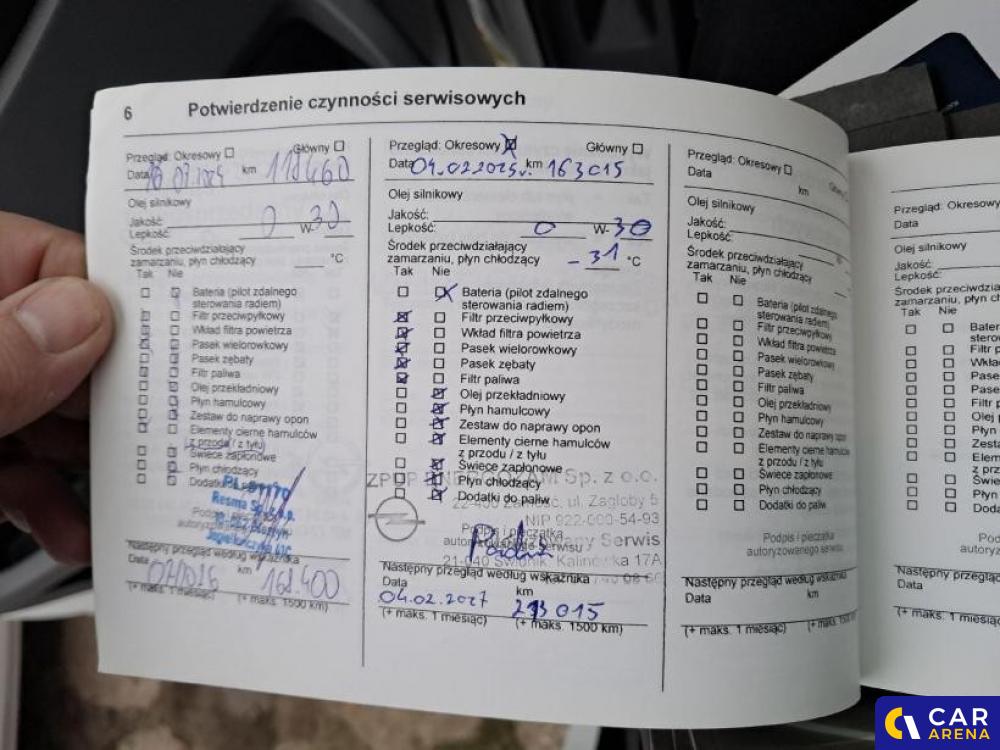 6 Potwierdzenie czynności serwisowych
Przegląd: Okresowy Główny
Data km 118460
Olej silnikowy
Jakość:
Lepkość: 0 W- 30
Środek przeciwdziałający
zamarzaniu, płyn chłodzący °C
Tak Nie
Bateria (pilot zdalnego
sterowania radiem)
Filtr przeciwpyłkowy
Wkład filtra powietrza
Pasek wielorowkowy
Pasek zębaty
Filtr paliwa
Olej przekładniowy
Płyn hamulcowy
Zestaw do naprawy opon
Elementy cierne hamulców
z przodu / z tyłu
Świece zapłonowe
Płyn chłodzący
Resma Sp.
Następny przegląd według wskaźnika
Data km 168.400
(+ maks. 1 miesiąc) (+ maks. 1500 km)
Przegląd: Okresowy Główny
Data 04.02.2025r. km 163015
Olej silnikowy
Jakość:
Lepkość: 0 W- 30
Środek przeciwdziałający
zamarzaniu, płyn chłodzący -31 °C
Tak Nie
Bateria (pilot zdalnego
sterowania radiem)
Filtr przeciwpyłkowy
Wkład filtra powietrza
Pasek wielorowkowy
Pasek zębaty
Filtr paliwa
Olej przekładniowy
Płyn hamulcowy
Zestaw do naprawy opon
Elementy cierne hamulców
z przodu / z tyłu
Świece zapłonowe
Płyn chłodzący
Dodatki do paliw
Sp. z o.o.
ul. Zagłoby 5
NIP 922-000-54-93
Podpis i pieczątka
Serwis
21-040 Świdnik, Kalinówka 17A
Następny przegląd według wskaźnika
Data km
04.02.2027 213015
(+ maks. 1 miesiąc) (+ maks. 1500 km)
Przegląd: Okresowy
Data km
Olej silnikowy
Jakość:
Lepkość:
Środek przeciwdziałający
zamarzaniu, płyn chłodzący
Tak Nie
Bateria (pilot zdalnego
sterowania radiem)
Filtr przeciwpyłkowy
Wkład filtra powietrza
Pasek wielorowkowy
Pasek zębaty
Filtr paliwa
Olej przekładniowy
Płyn hamulcowy
Zestaw do naprawy opon
Elementy cierne hamulców
z przodu / z tyłu
Świece zapłonowe
Płyn chłodzący
Dodatki do paliw
Podpis i pieczątka
autoryzowanego serwisu
Następny przegląd według wskaźnika
Data km
(+ maks. 1 miesiąc) (+ maks. 1500 km)
Przegląd: Okresowy
Data
Olej silnikowy
Jakość:
Lepkość:
Środek
zamarzaniu, płyn
Tak Nie
Filtr
Pasek
Pasek
Filtr
Olej
Płyn
Płyn
Następny przegląd
Data
(+ maks. 1
CAR
ARENA